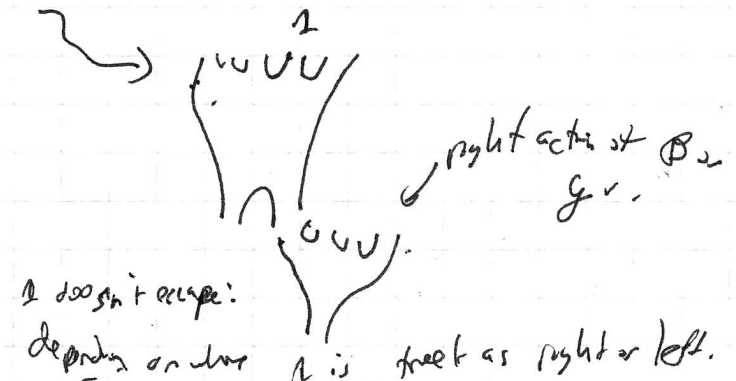 1
right action of B on
G v.
1 doesn't escape:
depending on where 1 is treat as right or left.